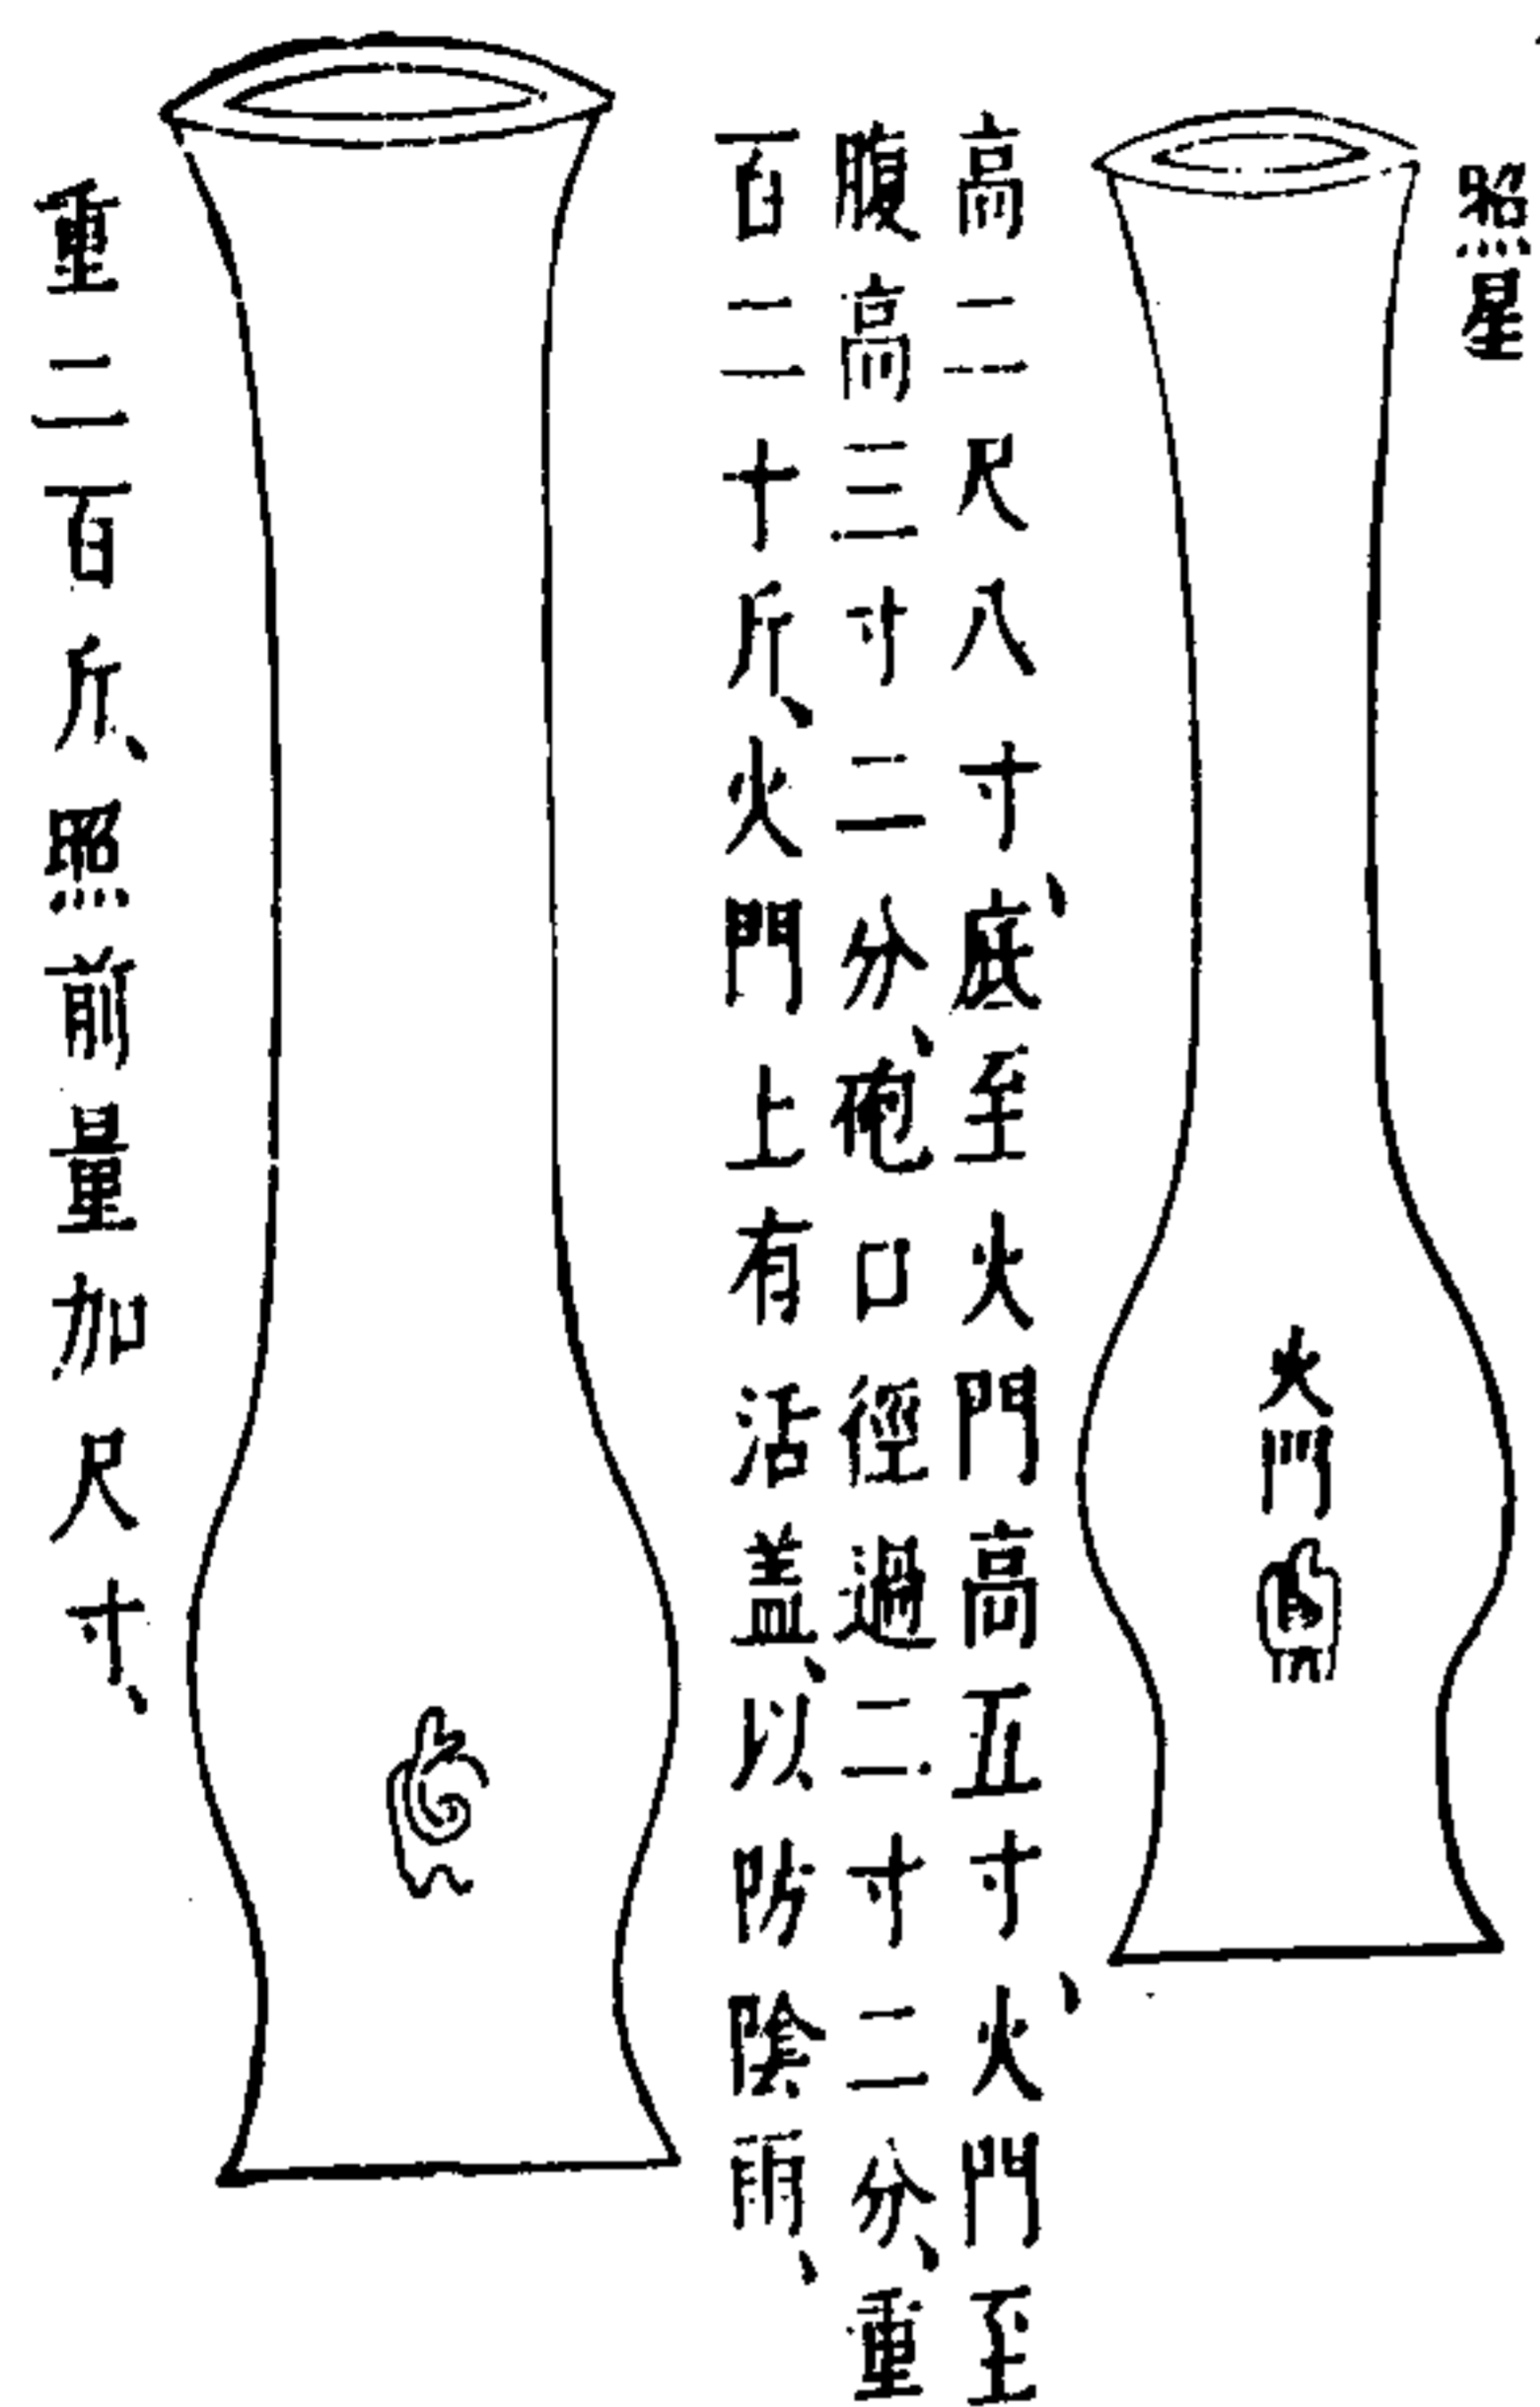 照星
火門
高二尺八寸、底至火門高五寸、火門至
腹高三寸二分、砲口徑過二寸二分、重
百二十斤、火門上有活盖、以防陰雨、
重二百斤、照前量加尺寸、